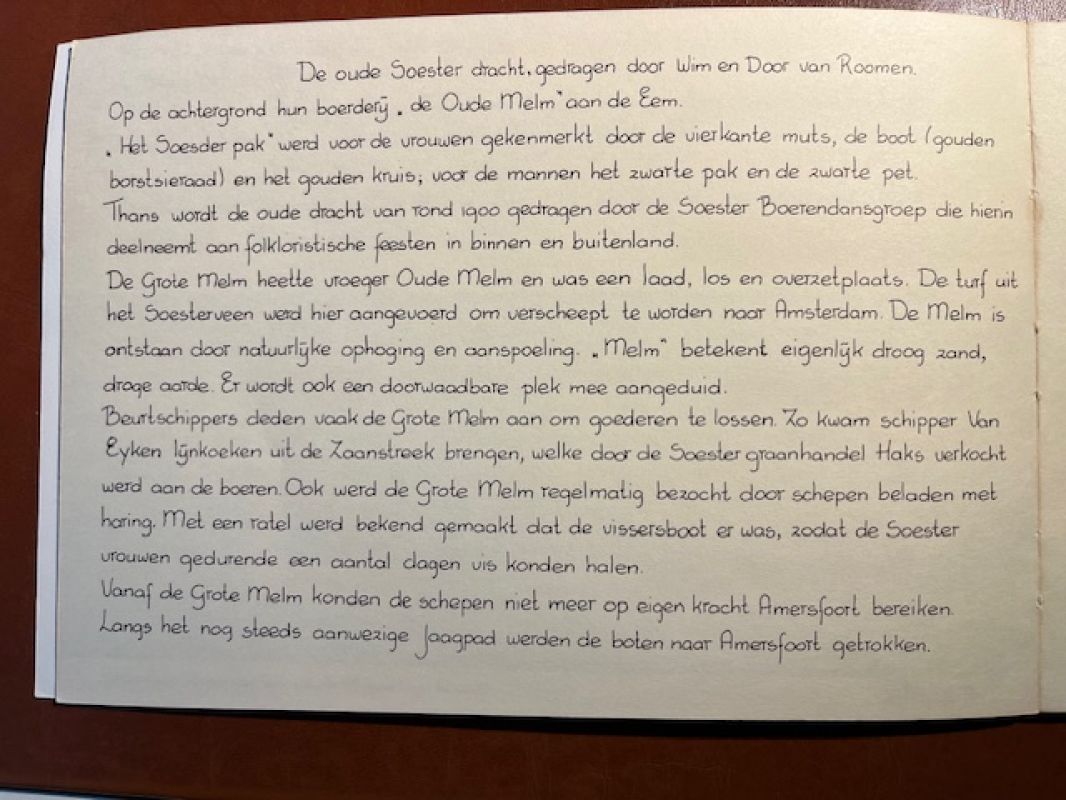 De oude Soester dracht, gedragen door Wim en Door van Roomen.
Op de achtergrond hun boerderij „de Oude Melm" aan de Eem.
„Het Soesder pak" werd voor de vrouwen gekenmerkt door de vierkante muts, de boot (gouden
borstsieraad) en het gouden kruis; voor de mannen het zwarte pak en de zwarte pet.
Thans wordt de oude dracht van rond 1900 gedragen door de Soester Boerendansgroep die hierin
deelneemt aan folkloristische feesten in binnen en buitenland.
De Grote Melm heette vroeger Oude Melm en was een laad, los en overzetplaats. De turf uit
het Soesterveen werd hier aangevoerd om verscheept te worden naar Amsterdam. De Melm is
ontstaan door natuurlijke ophoging en aanspoeling. „Melm" betekent eigenlijk droog zand,
droge aarde. Er wordt ook een doorwaadbare plek mee aangeduid.
Beurtschippers deden vaak de Grote Melm aan om goederen te lossen. Zo kwam schipper Van
Eyken lijnkoeken uit de Zaanstreek brengen, welke door de Soester graanhandel Haks verkocht
werd aan de boeren. Ook werd de Grote Melm regelmatig bezocht door schepen beladen met
haring. Met een ratel werd bekend gemaakt dat de vissersboot er was, zodat de Soester
vrouwen gedurende een aantal dagen vis konden halen.
Vanaf de Grote Melm konden de schepen niet meer op eigen kracht Amersfoort bereiken.
Langs het nog steeds aanwezige jaagpad werden de boten naar Amersfoort getrokken.